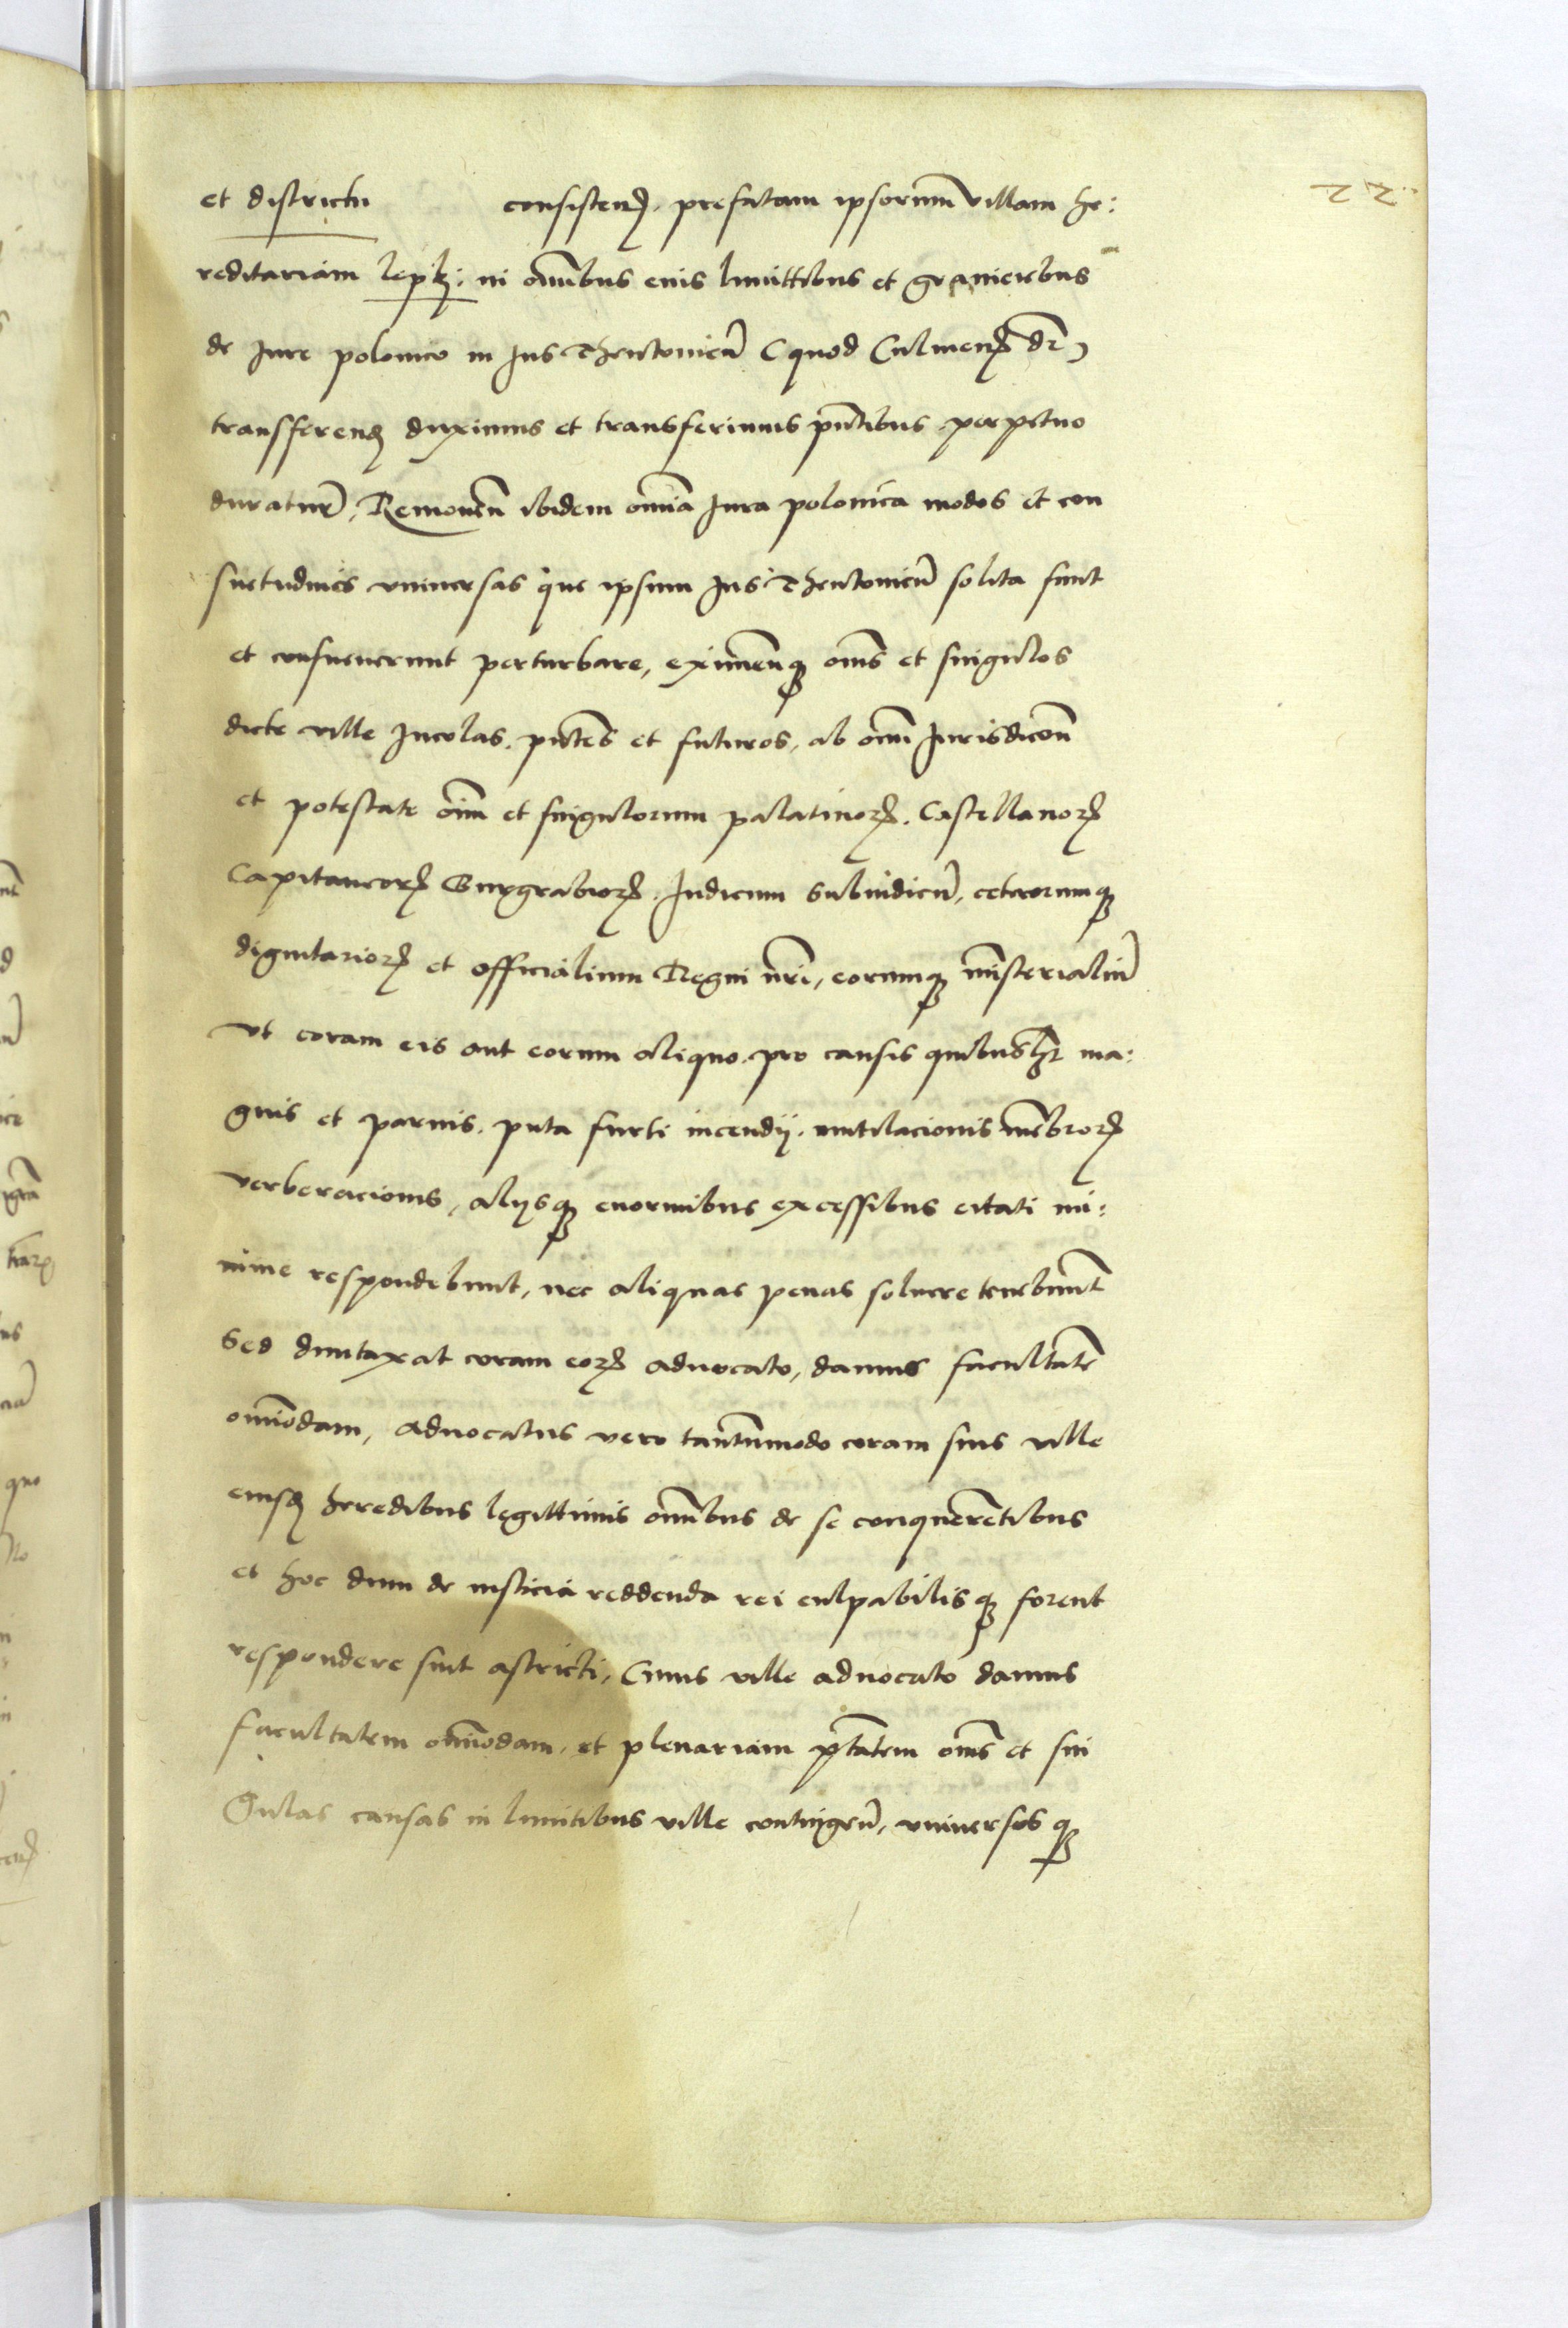 22
et districtu consistenꝭ. prefatam ipsorum̄ villam he:
reditariam lepki. in omībus eius limittibus et granicicbus
de Jure polonico in Jus Thewtonicū (quod Culmenꝭ dr̄)
transferenꝭ duximus et transferimus pn̄tibus perpetuo
duraturū. Remouen̄ ibidem omīa Jura polonica modos et con
suetudines vniuersas que ipsum Jus Thewtonicū solita sunt
et consueuerunt perturbare, eximen̄qꝫ om̄s et singulos
dicte ville Incolas. pn̄tes et futuros, ab om̄i Jurisdicōn
et potestate om̄i et singulorum palatinorꝝ. Castellanorꝝ
Capitaneorꝝ Burgrabiorꝝ. Judicum Subiudicū, ceterorumqꝫ
dignitariorꝝ et officialium Regni nr̄i, eorumqꝫ mīsterialiū
vt coram eis aut eorum aliquo. pro causis quibushꝫ ma:
gnis et paruis. puta furti incendij. mutilacionis mēbrorꝝ
verberacionis, alijsqꝫ enormibus excessibus citati mi:
nime respondebunt, nec aliquas penas soluere tenebunt̄
Sed duntaxat coram eorꝝ aduocato, damus facultatē
omīodam, aduocatus vero tantūmodo coram suis ville
eiusꝭ heredibus legittimis omībus de se conquerētibus
et hoc dum de iusticia reddenda rei culpabilisqꝫ forent
respondere sint astricti, Cuius ville aduocato damus
facultatem omīodam, et plenariam ptātem om̄s et sin
Gulas causas in limitibus ville contingen̄, vniuersos qꝫ